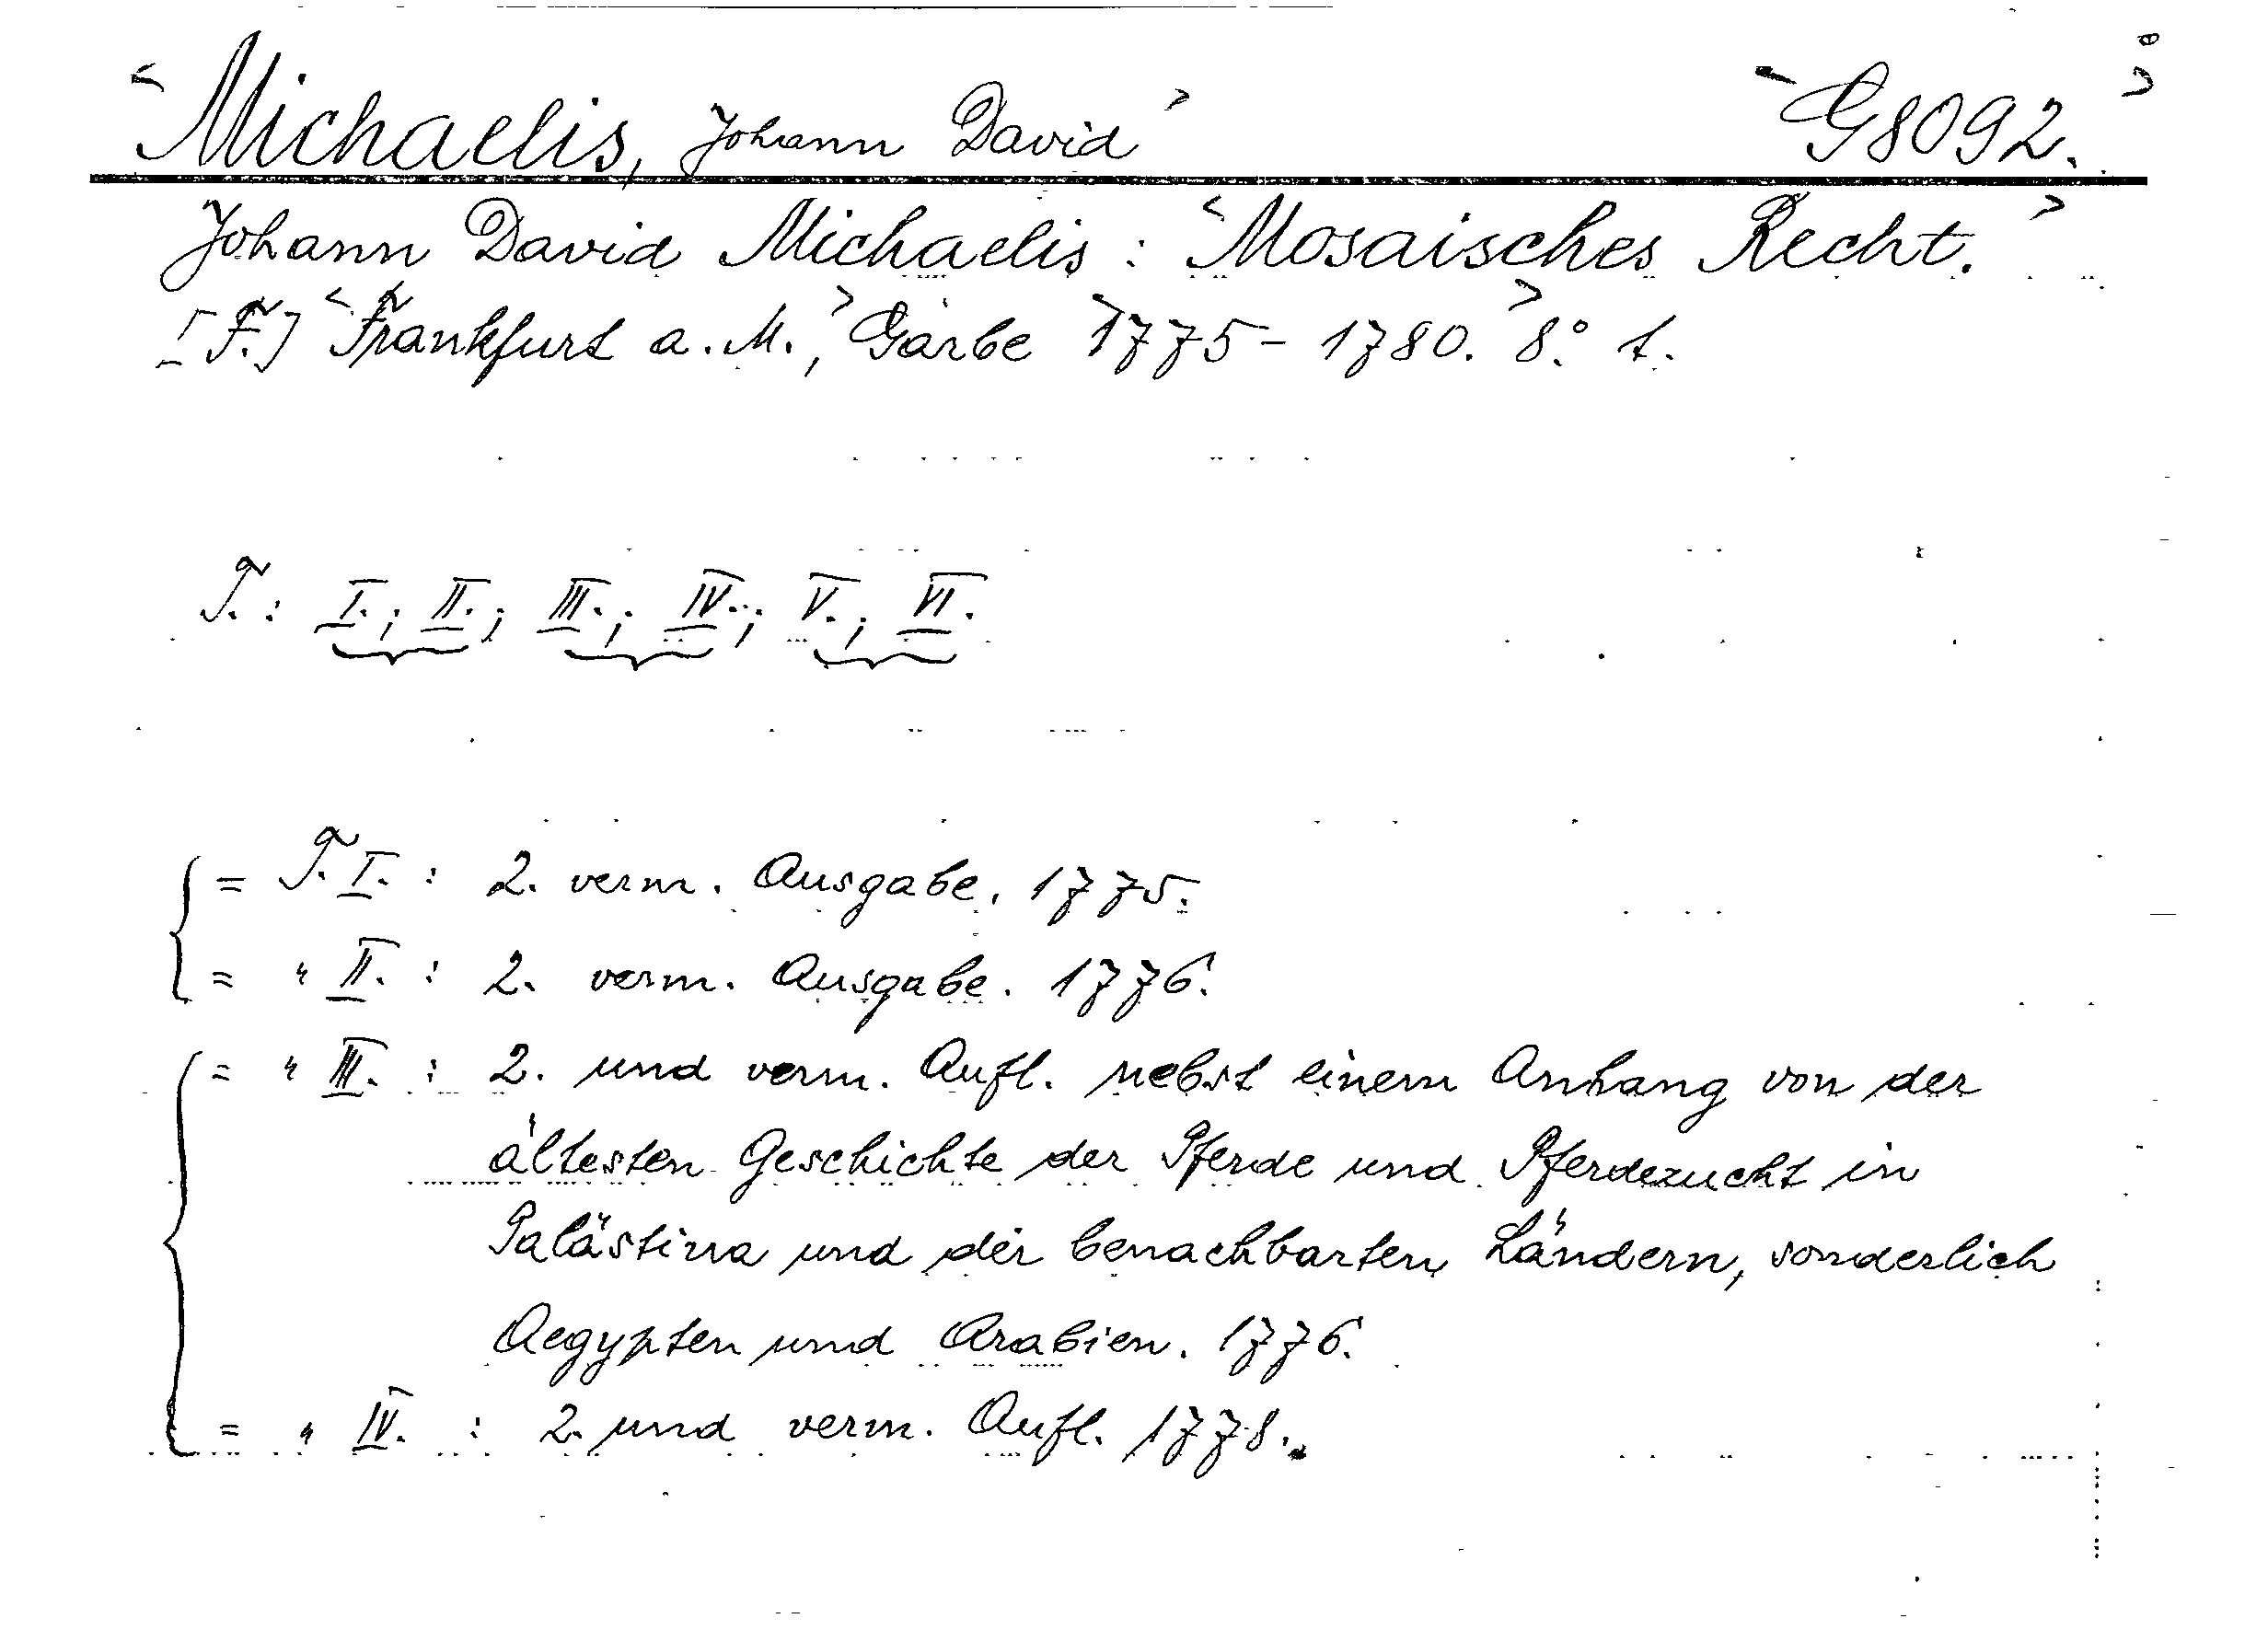 <Michaelis, Johann David> <G8092.>
Johann David Michaelis: <Mosaisches Recht.>
[T.] <Frankfurt a. M.,> Garbe <1775-1780.> 8.° t.
T.: I.; II.; III.; IV.; V.; VI.
= T. I. : 2. verm. Ausgabe. 1775.
= " II. : 2. verm. Ausgabe. 1776.
= " III. : 2. und verm. Aufl. nebst einem Anhang von der
ältesten Geschichte der Pferde und Pferdezucht in
Palästina und der benachbarten Ländern, sonderlich
Aegypten und Arabien. 1776.
= " IV. : 2. und verm. Aufl. 1778.